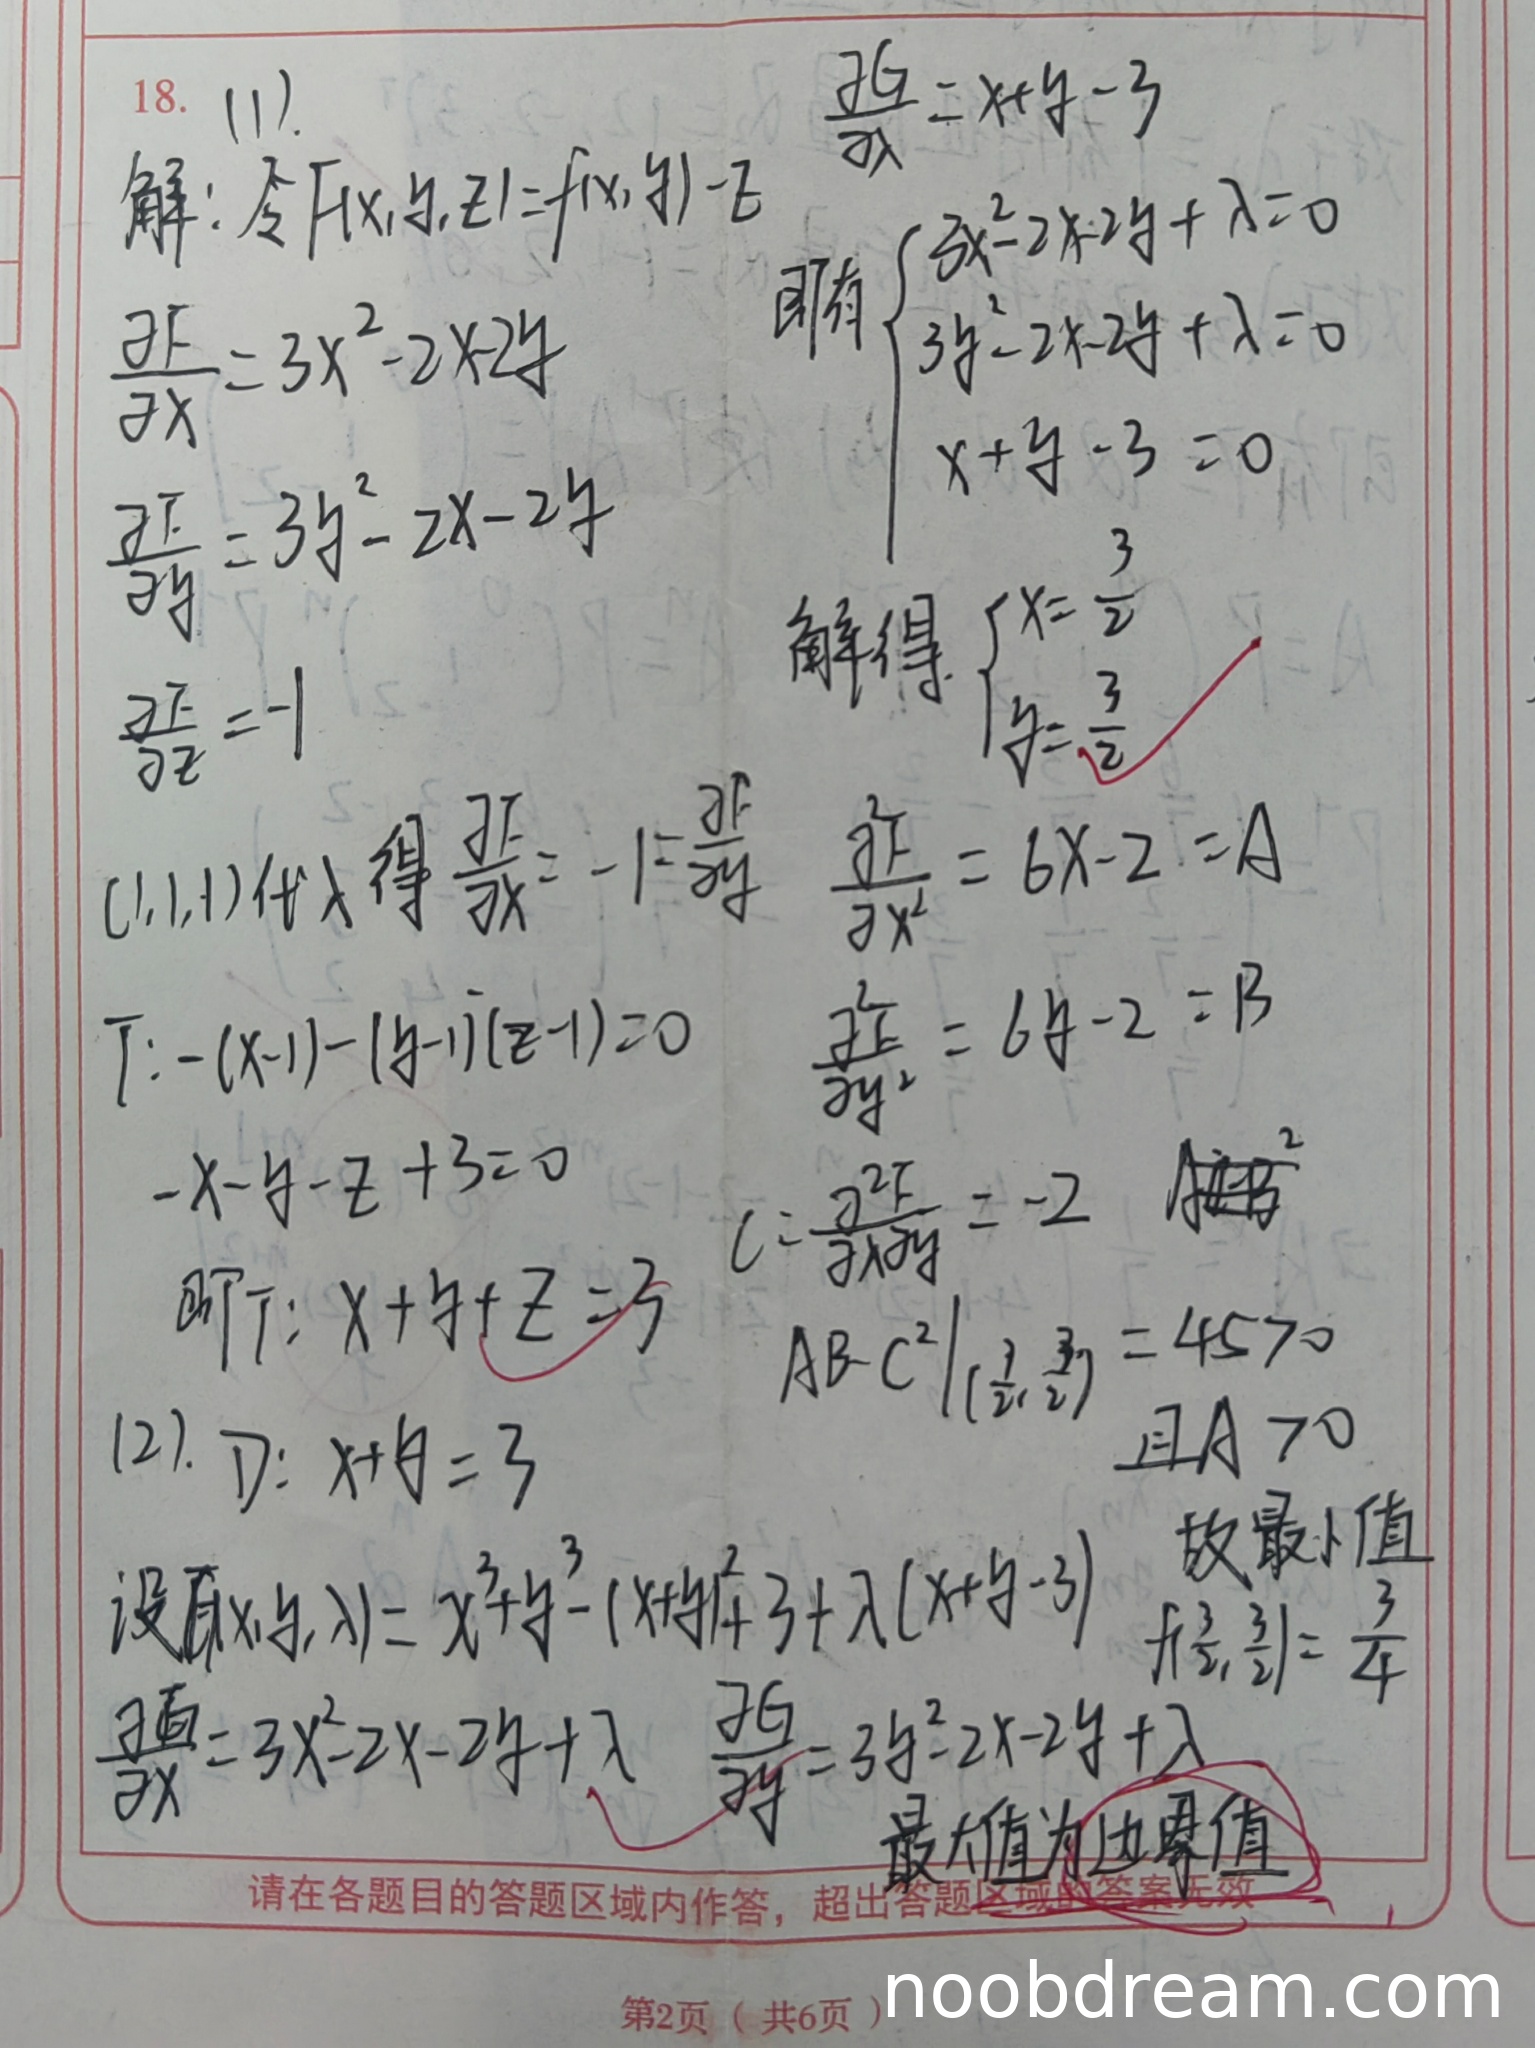 18. (1).
解: 令F(x,y,z)=f(x,y)-z
∂F/∂x = 3x²-2x-2y
∂F/∂y = 3y²-2x-2y
∂F/∂z = -1
(1,1,1)代入得 ∂F/∂x = -1 = ∂F/∂y
T: -(x-1)-(y-1)-(z-1)=0
-x-y-z+3=0
即T: x+y+z=3
(2). D: x+y=3
设G(x,y,λ)= x³+y³-(x+y)²+3+λ(x+y-3)
∂G/∂x = 3x²-2x-2y+λ ∂G/∂y = 3y²-2x-2y+λ
∂G/∂λ = x+y-3
即有 { 3x²-2x-2y+λ=0
3y²-2x-2y+λ=0
x+y-3=0
解得 { x=3/2
y=3/2
∂²F/∂x² = 6x-2 = A
∂²F/∂y² = 6y-2 = B
C = ∂²F/∂x∂y = -2
AB-C²|(3/2,3/2) = 45>0
且A>0
故最小值
f(3/2,3/2)=3/4
最大值为边界值
请在各题目的答题区域内作答，超出答题区域的答案无效
第2页（共6页）
noobdream.com